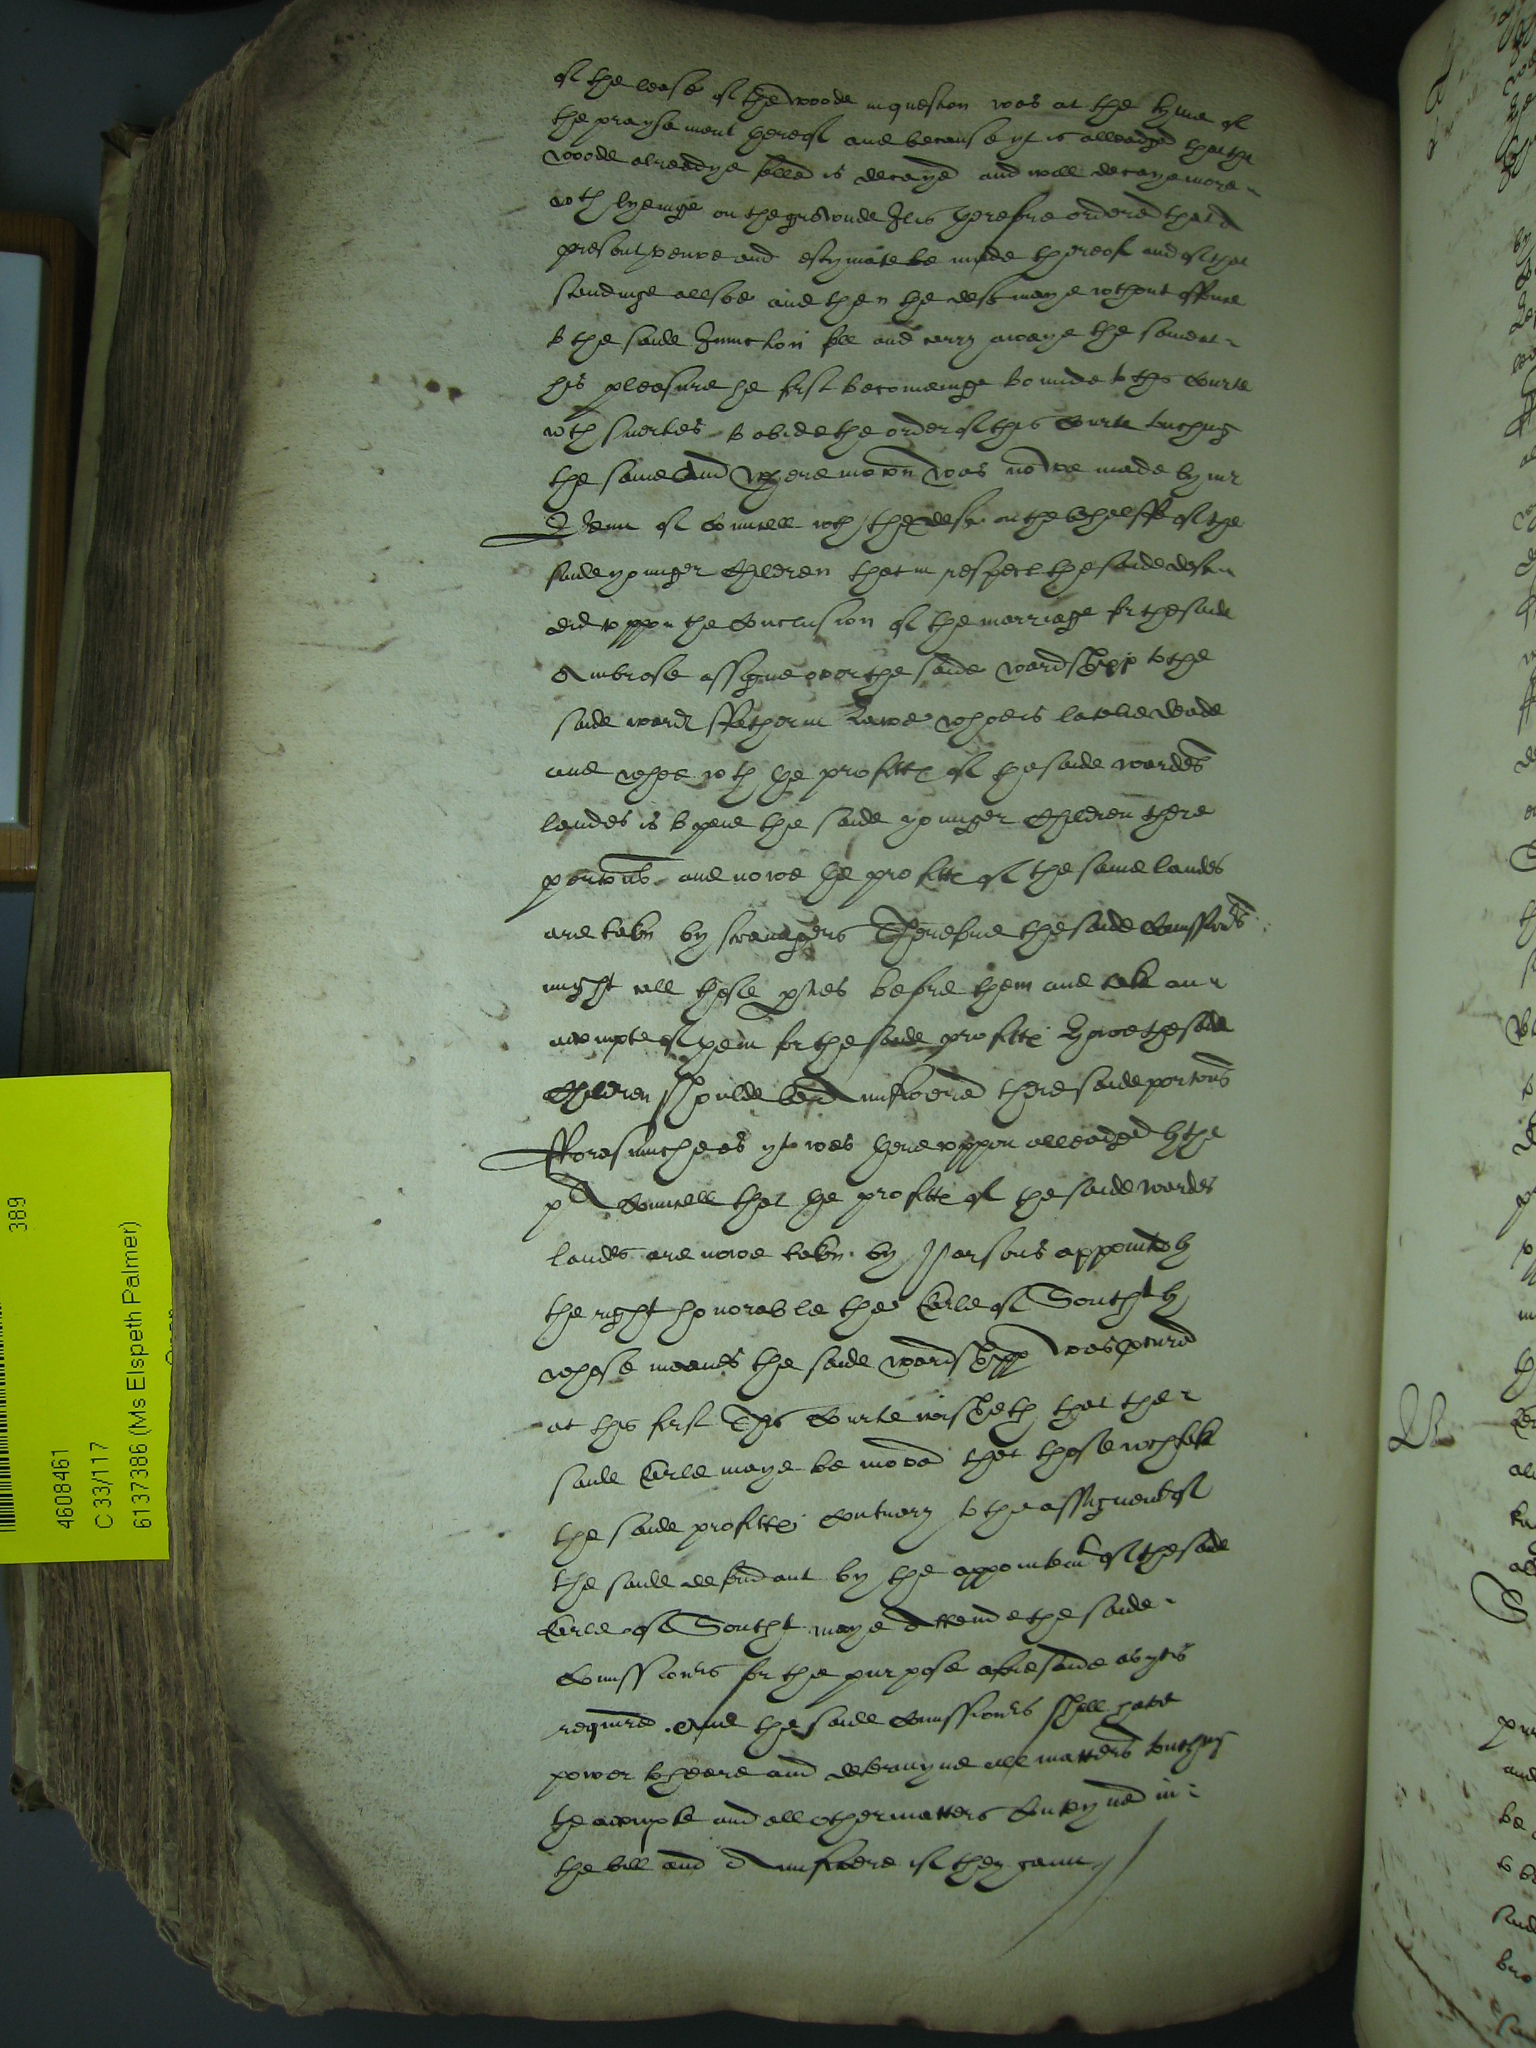 of the lease of the woode in question was at the tyme of
the praysement hereof and because yt is alleadged that the
woode alreadye felled is decayed and will decaye more
wth lyeinge on the grownde It is therefore ordered that a
present viewe and estymate be made thereof and of that
standinge allsoe and then the deft maye wthout offence
to the saide Iniunction fell and carry awaye the same at
his pleasure he first becomeinge bounde to this Courte
wth suerties to abide the order of this Courte touching
the same And where mocion was nowe made by mr
of Councell wth the deft on the behalffe of the
saide younger Children that in respect the saide deft
did vppon the Conclusion of the marriage for the saide
Ambrose assigne over the saide wardshipp to the
saide wards ffather in Lawe whoe is latelie deade
and whoe wth the profitts of the saide wardes
landes is to paye the saide younger Children there
portions and nowe the profitts of the same landes
are taken by strangers Therefore the saide Comissioners
might call those pties before them and take an
accompte of them for the saide profitts howe the saide
Children shoulde bee answered there saide portions
fforasmuche as yt was herevppon alleadged by the
pl Councell that the profitts of the saide wardes
landes are nowe taken by Parsons appointed by
the right honorable the Erle of Southt by
whose meanes the saide wardshipp was pcured
at this first This Courte wisheth that the
saide Erle maye be moved that those wch take
the saide profitts Contrary to the assignemt of
the saide defendant by the appointemt of the saide
Erle of Southt maye attende the saide
Comissioners for the purpose aforesaide as yt is
required And the saide Comissioners shall have
power to heare and determyne all matters touching
the accompte and all other matters Conteyned in
the bill and answere if they cann
4608461 389
C 33/117
6137386 (Ms Elspeth Palmer)